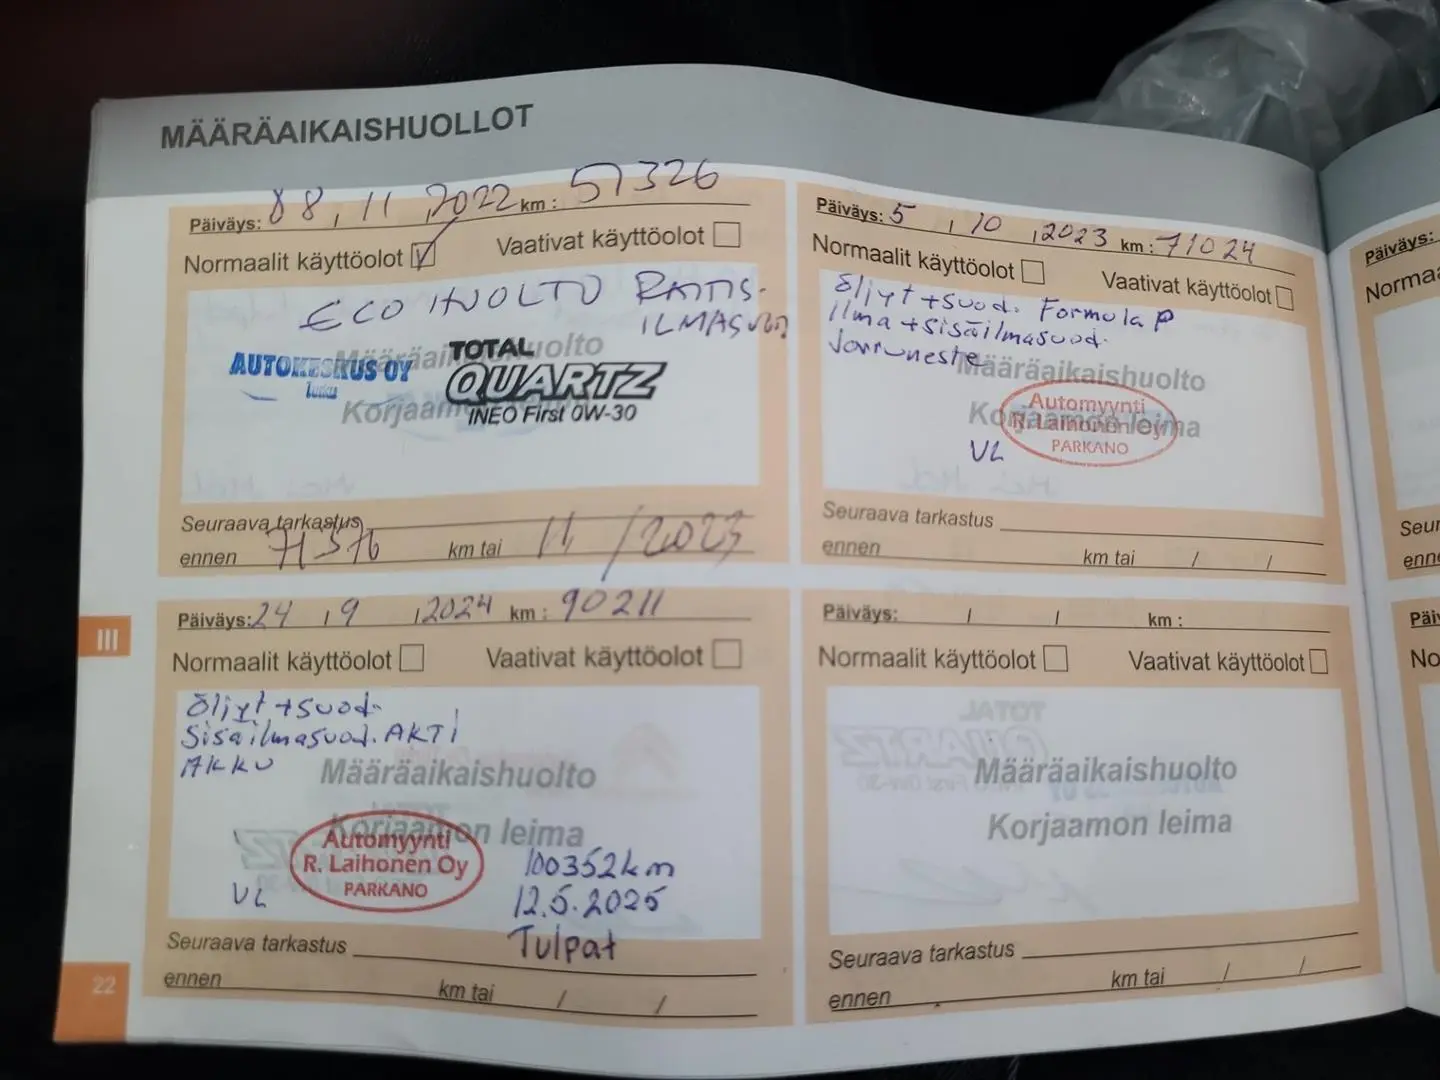 MÄÄRÄAIKAISHUOLLOT
Päiväys: 08 . 11 . 2022 km : 51326
Normaalit käyttöolot Vaativat käyttöolot
ECO HUOLTO RAITIS-
ILMASUOD
Määräaikaishuolto
AUTOKESKUS OY
Turku
TOTAL
QUARTZ
INEO First 0W-30
Korjaamon
Seuraava tarkastus
ennen 71376 km tai 11 / 2023
Päiväys: 5 . 10 . 2023 km : 71024
Normaalit käyttöolot Vaativat käyttöolot
öljyt + suod. Formula P
ilma + sisäilmasuod.
Jarruneste
Määräaikaishuolto
Korjaamon leima
Automyynti
R. Laihonen Oy
PARKANO
VL
Seuraava tarkastus
ennen km tai / /
III
Päiväys: 24 . 9 . 2024 km : 90211
Normaalit käyttöolot Vaativat käyttöolot
öljyt + suod.
Sisäilmasuod. AKTI
AKKU
Määräaikaishuolto
Korjaamon leima
Automyynti
R. Laihonen Oy
PARKANO
VL
100352km
12.5.2025
Tulpat
Seuraava tarkastus
ennen km tai / /
Päiväys: / / km :
Normaalit käyttöolot Vaativat käyttöolot
Määräaikaishuolto
Korjaamon leima
Seuraava tarkastus
ennen km tai / /
22
Päiväys: